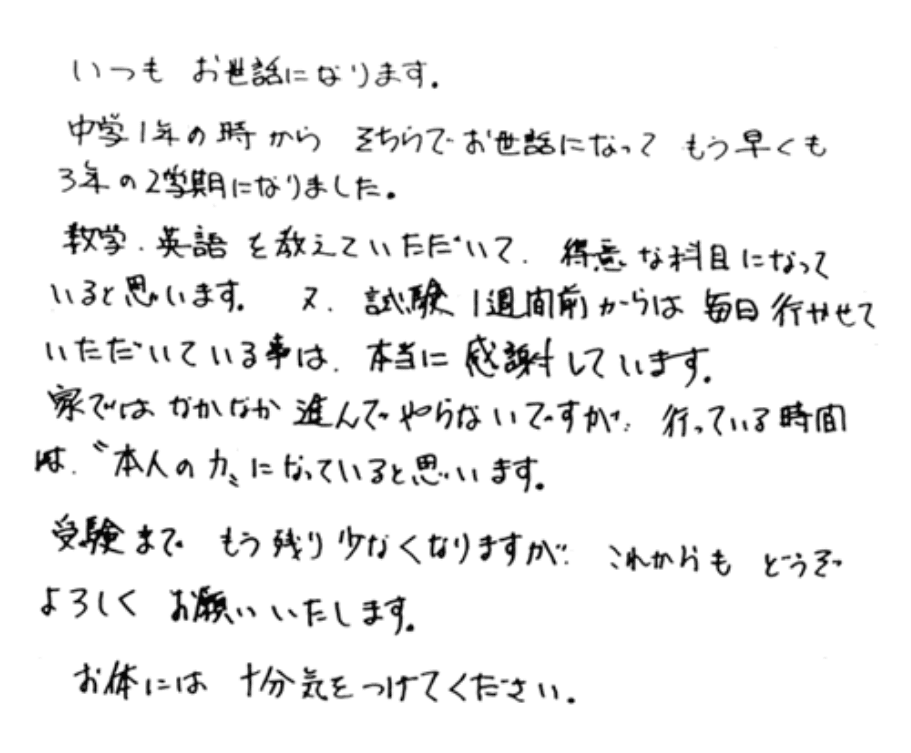 いつも お世話になります。
中学1年の時から そちらでお世話になって もう早くも
3年の2学期になりました。
数学、英語を教えていただいて、得意な科目になって
いると思います。 又、試験1週間前からは 毎日行かせて
いただいている事は、本当に感謝しています。
家ではなかなか進んでやらないですが、行っている時間
は、〝本人の力〟になっていると思います。
受験まで もう残り少なくなりますが、これからも どうぞ
よろしく お願いいたします。
お体には 十分気をつけてください。